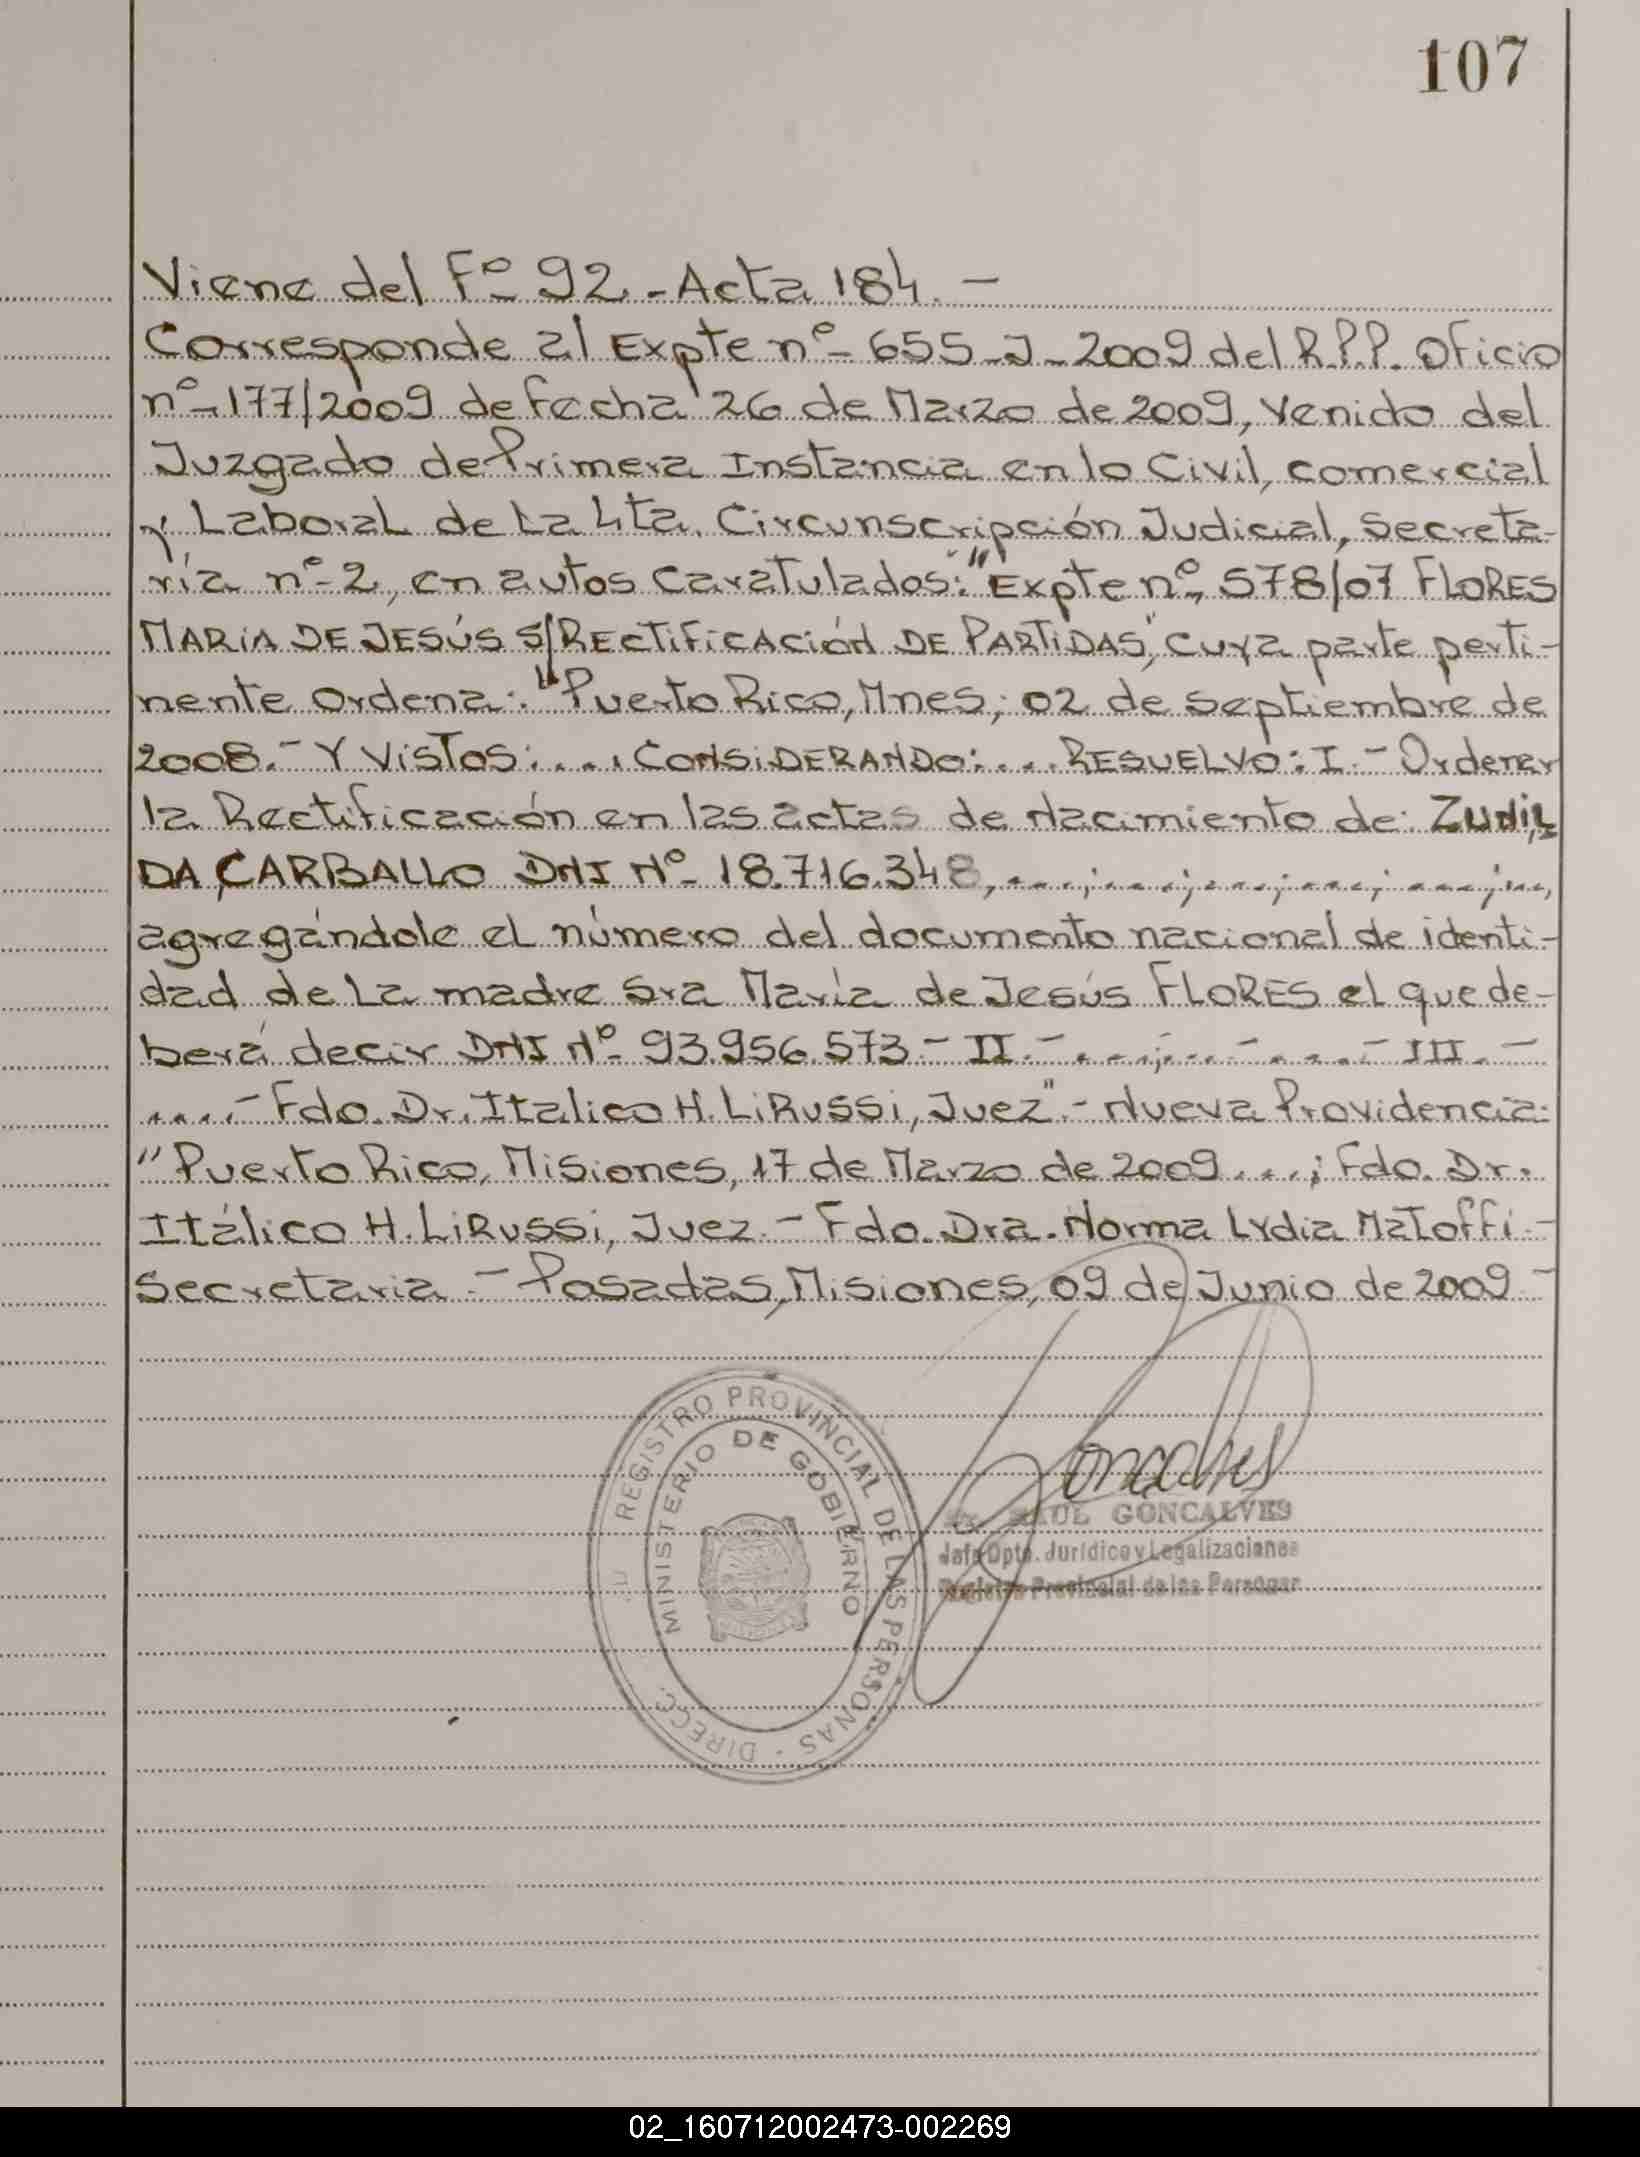 107
Viene del Fº 92.-Acta 184.-
Corresponde al Expte nº- 655-J-2009 del R.P.P. Oficio
nº-177/2009 de fecha 26 de Marzo de 2009, venido del
Juzgado de Primera Instancia en lo Civil, comercial
y Laboral de La 4ta. Circunscripción Judicial, Secreta-
ría nº-2, en autos Caratulados: "Expte nº- 578/07 FLORES
MARIA DE JESÚS S/RECTIFICACIÓN DE PARTIDAS", cuya parte perti-
nente Ordena: "Puerto Rico, Mnes, 02 de Septiembre de
2008.- Y VISTOS:.... CONSIDERANDO:.... RESUELVO: I.- Ordenar
la Rectificación en las actas de Nacimiento de: ZUNIL
DA CARBALLO DNI Nº- 18.716.348, ...;...;...;...;...;...,
agregándole el número del documento nacional de identi-
dad de La madre Sra María de Jesús FLORES el que de-
berá decir DNI Nº- 93.956.573.- II.-....;..-....- III.-
....- Fdo. Dr. Italico H. LiRussi, Juez".- Nueva Providencia:
"Puerto Rico, Misiones, 17 de Marzo de 2009....; Fdo. Dr.
Itálico H. LiRussi, Juez.- Fdo. Dra. Norma Lydia Matoffi.-
Secretaria.- Posadas, Misiones, 09 de Junio de 2009.-
REGISTRO PROVINCIAL DE LAS PERSONAS - DIRECC.
MINISTERIO DE GOBIERNO
Goncalves
RAUL GONCALVES
Jefe Dpto. Jurídico y Legalizaciones
Registro Provincial de las Personas
02_160712002473-002269